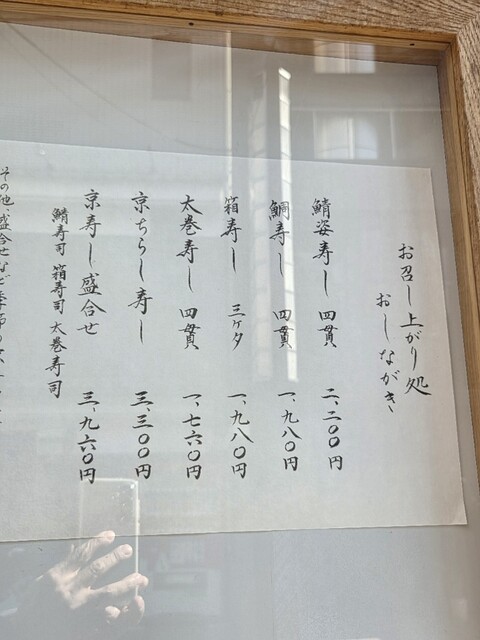 お召し上がり処
おしながき
鯖姿寿し 四貫 二、二００円
鯛寿し 四貫 一、九八０円
箱寿し 三ケタ 一、九八０円
太巻寿し 四貫 一、七六０円
京ちらし寿し 三、三００円
京寿し盛合せ 三、九六０円
鯖寿司 箱寿司 太巻寿司
その他、盛合せなど季節の